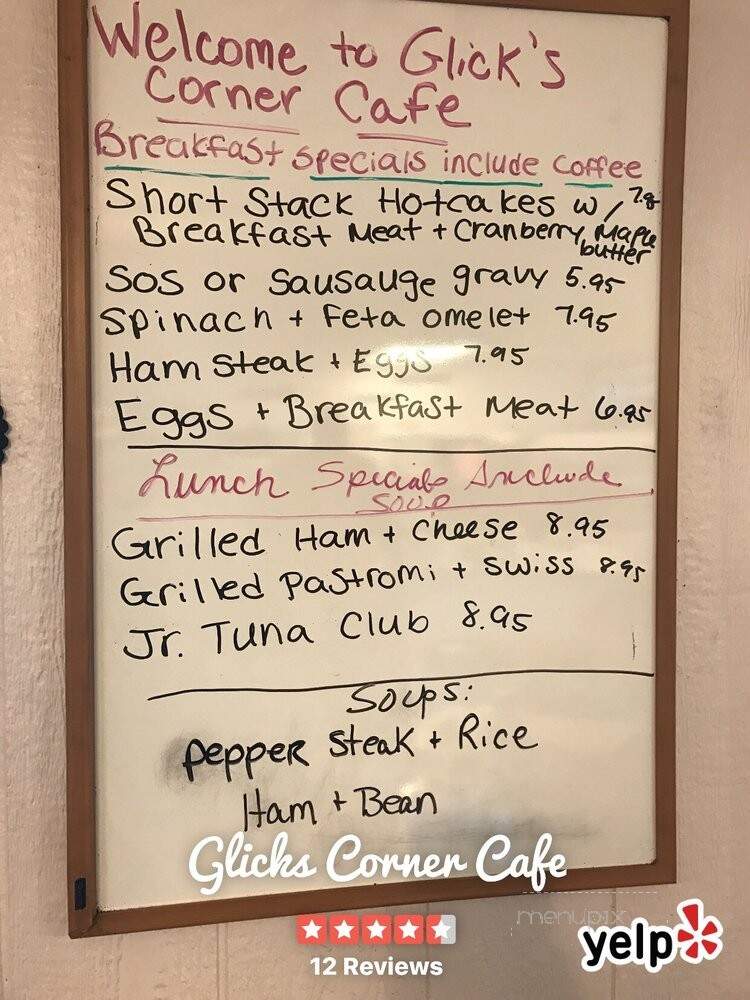 Welcome to Glick's
Corner Cafe
Breakfast Specials include Coffee
Short Stack Hotcakes w/ 7.8
Breakfast Meat + Cranberry Maple
butter
SOS or Sausauge gravy 5.95
Spinach + Feta omelet 7.95
Ham Steak + Eggs 7.95
Eggs + Breakfast Meat 6.95
Lunch Specials Include
Soup
Grilled Ham + Cheese 8.95
Grilled Pastromi + Swiss 8.95
Jr. Tuna Club 8.95
Soups:
Pepper Steak + Rice
Ham + Bean
Glicks Corner Cafe
menupix
yelp
12 Reviews